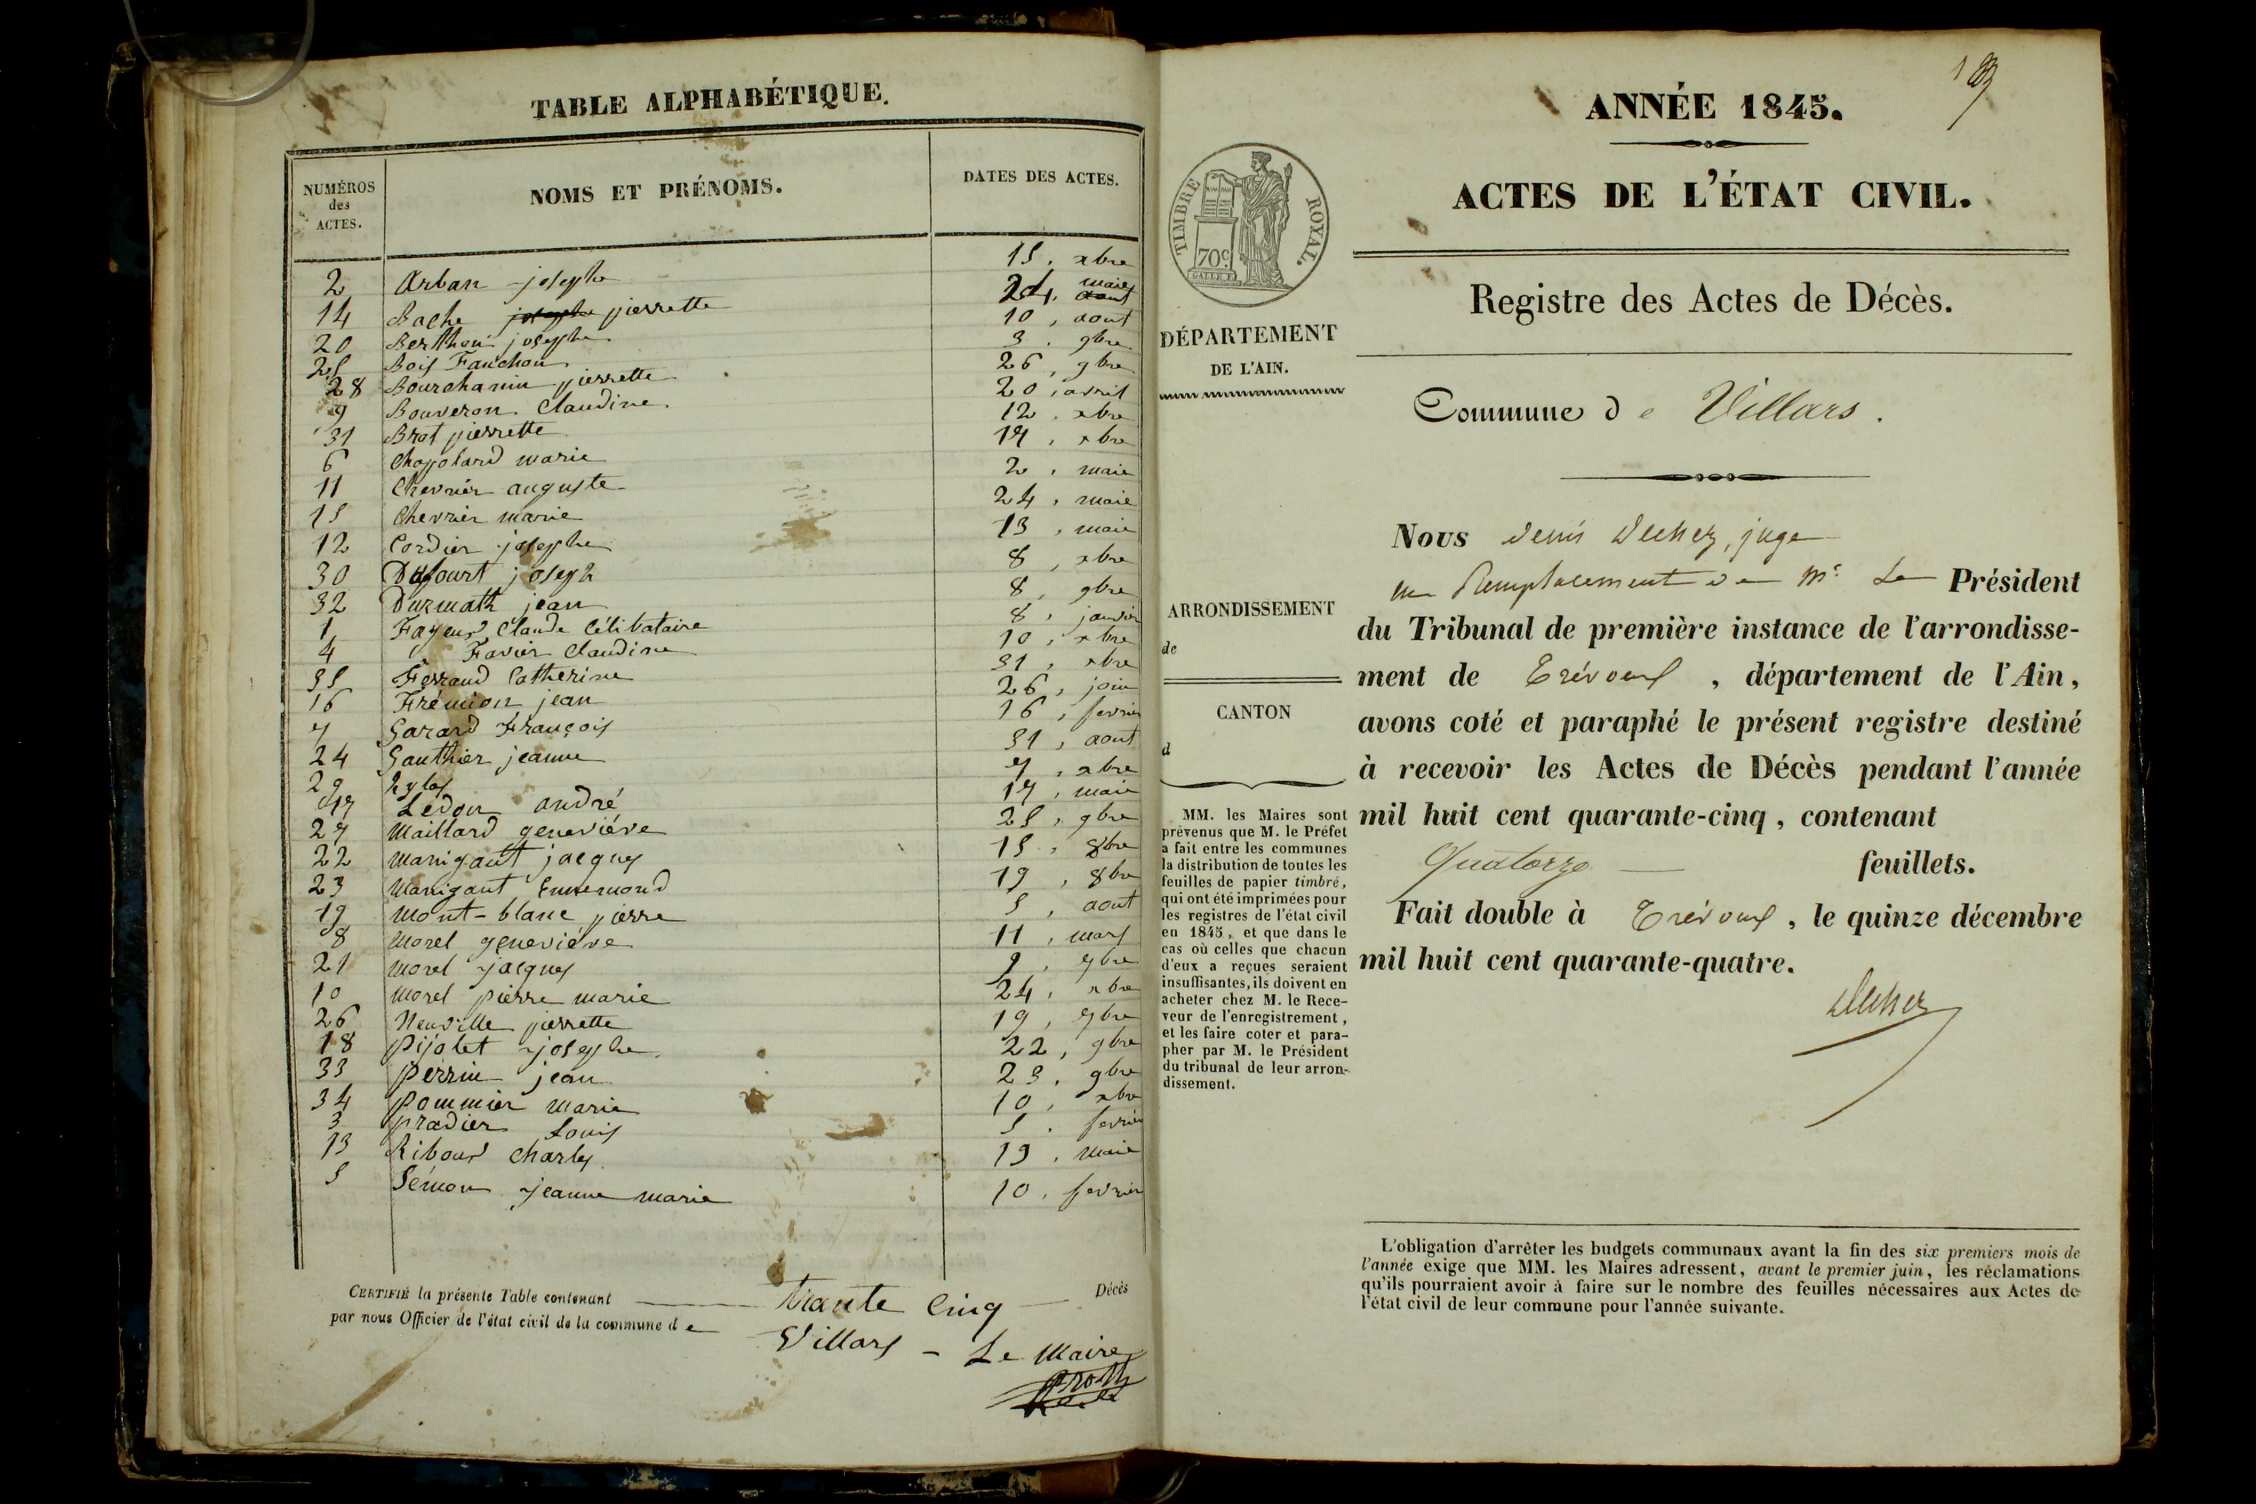 TABLE ALPHABÉTIQUE.
NUMÉROS des ACTES.
NOMS ET PRÉNOMS.
DATES DES ACTES.
2 Arban josephe 15, xbre
14 Bache josephe pierrette 24, maie aout
20 Berthoui josephe 10, aout
25 Bois Fanchon 3, 9bre
28 Bourchanin pierrette 26, 9bre
9 Bouveron Claudine 20, avril
31 Brot pierrette 12, xbre
6 Chapolard marie 17, xbre
11 Chevrier auguste 2, maie
15 Chevrier marie 24, maie
12 Cordier josephe 13, maie
30 Dufourt joseph 8, xbre
32 Durmath jean 8, 9bre
1 Fayeux Claude Célibataire 8, janvier
4 Favier Claudine 10, xbre
35 Ferraud Catherine 31, xbre
16 Frémion jean 26, join
7 Garard François 16, fevrier
24 Gauthier jeanne 31, aout
29 hylas 7, xbre
17 Ledon andré 17, maie
27 Maillard geneviéve 25, 9bre
22 Manigant jacques 15, 8bre
23 Manigant Ennemond 19, 8bre
19 Mont-blanc pierre 5, aout
8 Morel geneviéve 11, mars
21 Morel jacques 9, 7bre
10 Morel pierre marie 24, xbre
26 Neuville pierrette 19, 9bre
18 Pijolet josephe 22, 9bre
33 Perrin jean 23, 9bre
34 Pommier marie 10, xbre
3 Pradier Louis 5, fevrier
13 Riboud Charles 19, maie
5 Sémon jeanne marie 10, fevrier
CERTIFIÉ la présente Table contenant Trante Cinq Décès
par nous Officier de l'état civil de la commune de Villars - Le Maire
189
ANNÉE 1845.
ACTES DE L'ÉTAT CIVIL.
TIMBRE ROYAL.
70c
Registre des Actes de Décès.
DÉPARTEMENT
DE L'AIN.
Commune de Villars.
ARRONDISSEMENT
de
CANTON
d
MM. les Maires sont
prévenus que M. le Préfet
a fait entre les communes
la distribution de toutes les
feuilles de papier timbré,
qui ont été imprimées pour
les registres de l'état civil
en 1845, et que dans le
cas où celles que chacun
d'eux a reçues seraient
insuffisantes, ils doivent en
acheter chez M. le Rece-
veur de l'enregistrement,
et les faire coter et para-
pher par M. le Président
du tribunal de leur arron-
dissement.
Nous denis juge
en Remplacement de Mr Le Président
du Tribunal de première instance de l'arrondisse-
ment de Trévoux, département de l'Ain,
avons coté et paraphé le présent registre destiné
à recevoir les Actes de Décès pendant l'année
mil huit cent quarante-cinq, contenant
Quatorze feuillets.
Fait double à Trévoux, le quinze décembre
mil huit cent quarante-quatre.
L'obligation d'arrêter les budgets communaux avant la fin des six premiers mois de
l'année exige que MM. les Maires adressent, avant le premier juin, les réclamations
qu'ils pourraient avoir à faire sur le nombre des feuilles nécessaires aux Actes de
l'état civil de leur commune pour l'année suivante.